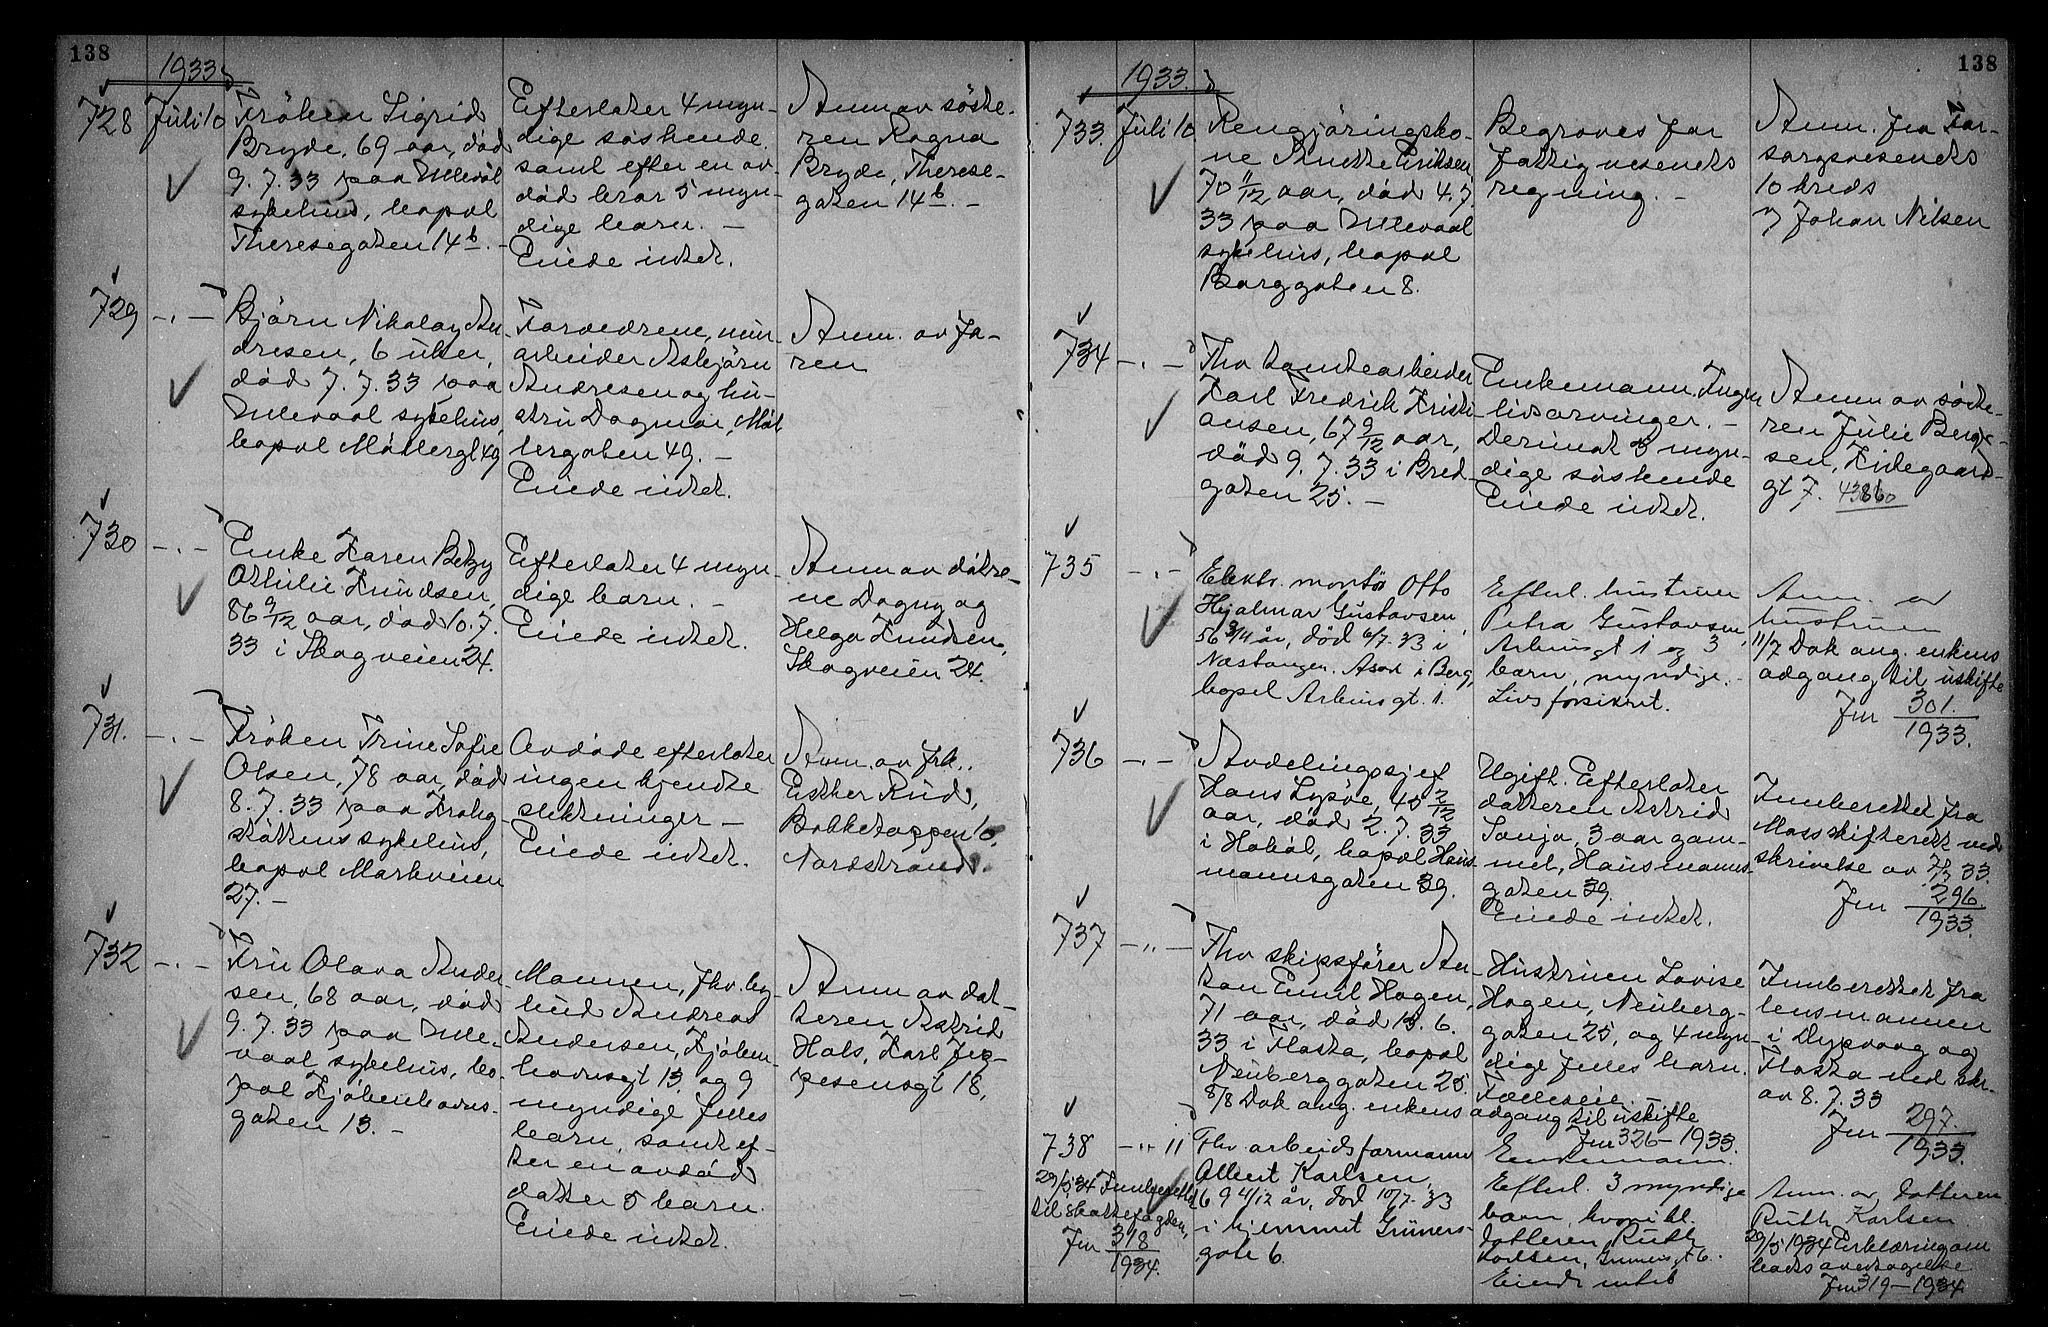 138
1933
728
Juli 10
Fröken Sigrid
Bryde, 69 aar, död
9.7.33 paa Ullevål
sykehus, bopæl
Theresegaten 14b. -
Efterlater 4 myn-
dige söskende
samt efter en av-
död bror 5 myn-
dige barn. -
Eiede intet.
Anm av söste-
ren Ragna
Bryde, Therese-
gaten 14b. -
729
-.-
Björn Nikolay An-
dresen, 6 uker,
död 7.7.33 paa
Ullevaal sykehus,
bopæl Möllergt 49
Forældrene, mur-
arbeider Asbjörn
Andresen og hu-
stru Dagmar, Möl-
lergaten 49. -
Eiede intet.
Anm. av fa-
ren
730
-.-
Enke Karen Betzy
Othilie Knudsen,
86 9/12 aar, död 10.7.
33 i Skogveien 24.
Efterlater 4 myn-
dige barn. -
Eiede intet.
Anm av dötre-
ne Dagny og
Helga Knudsen,
Skogveien 24.
731.
-.-
Fröken Trine Sofie
Olsen, 78 aar, död
8.7.33 paa Krohg-
støttens sykehus,
bopæl Markveien
27. -
Avdöde efterlater
ingen kjendte
slektninger -
Eiede intet.
Anm. av frk.
Esther Rud,
Bakketoppen 10,
Nordstrand.
732
-.-
Fru Olava Ander-
sen, 68 aar, död
9.7.33 paa Ulle-
vaal sykehus, bo-
pæl Kjöbenhavns-
gaten 13. -
Mannen, fhv. by-
bud Andreas
Andersen, Kjöben-
havnsgt 13, og 9
myndige felles
barn, samt ef-
ter en avdöd
datter 5 barn.
Eiede intet.
Anm av dat-
teren Astrid
Hals, Karl Jep-
pesensgt 18,
138
1933.
733.
Juli 10
Rengjöringsko-
ne Anette Eriksen,
70 11/12 aar, död 4.7.
33 paa Ullevaal
sykehus, bopæl
Borggaten 8.
Begraves for
fattigvesenets
regning. -
Anm. fra For-
sorgsvesenets
10 kreds
v/ Johan Nilsen
734
-.-
Fhv tomtearbeider
Karl Fredrik Kristi-
ansen, 67 9/12 aar,
död 9.7.33 i Bred-
gaten 25. -
Enkemann. Ingen
livsarvinger. -
Derimot 3 myn-
dige söskende
Eiede intet.
Anm av söste-
ren Julie Berg-
sen, Kirkegaards-
gt 7. 43860
735
-.-
Elektr. montör Otto
Hjalmar Gustavsen,
56 år, död 6/7.33 i
i Berg,
bopæl Arbinsgt. 1.
Efterl. hustruen
Petra Gustavsen,
Arbinsgt 1 og 3
barn, myndige. -
Livsforsikret.
Anm. av
hustruen
11/7 Dok ang. enkens
adgang til uskifte
Jnr 301.
1933.
736
-.-
Avdelingssjef
Hans Lysöe, 45 2/12
aar, död 2.7.33
i Hobøl, bopæl Haus-
mannsgaten 39.
Ugift. Efterlater
datteren Astrid
Sonja, 3 aar gam-
mel, Hausmanns-
gaten 39.
Eiede intet.
Innberettet fra
Moss skifterett ved
skrivelse av 7/7 33.
Jnr 296.
1933.
737
-"-
Fhv skipsförer An-
ton Emil Hagen,
71 aar, död 13.6.
33 i Flosta, bopæl
Neuberggaten 25.
8/8 Dok ang. enkens adgang til uskifte
Jnr 326-1933.
Hustruen Lovise
Hagen, Neuberg-
gaten 25, og 4 myn-
dige felles barn.
Felleseie. -
Innberettet fra
lensmannen
i Dypvaag og
Flosta ved skr.
av 8.7.33
Jnr 297.
1933.
738
-"- 11
29/5 34 Innberettet
til skattefogden,
Jnr 318
1934.
Fhv. arbeidsformann
Albert Karlsen,
69 4/12 år, död 10/7.33
i hjemmet Grüners-
gate 6.
Enkemann.
Efterl. 3 myndige
barn, hvoribl.
datteren Ruth
Karlsen, Grünersgt 6.
Eiende intet
Anm. av datteren
Ruth Karlsen
29/5 1934 Erklæring om
boets overtagelse
Jnr 319-1934